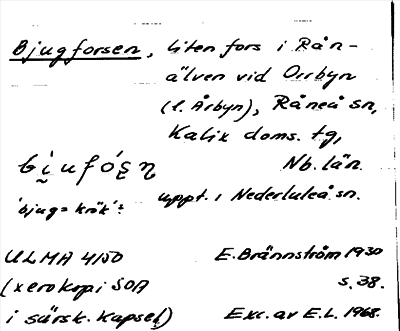 Bjugforsen, liten fors i Rån-
älven vid Orrbyn
(l. Årbyn), Råneå sn,
Kalix doms. tg,
Nb. län.
bi̯ufó̀ʂn̥
'bjug = krök'? uppt. i Nederluleå sn.
ULMA 4150 E. Brännström 1930
(xerokopi SOA s. 38.
i särsk. kapsel) Exc. av E.L. 1968.